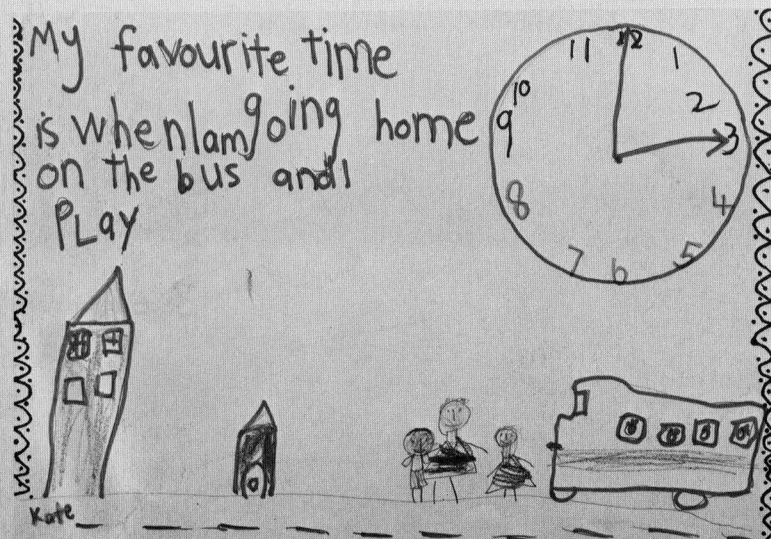 My favourite time
is when I am going home
on the bus and I
PLay
12
11
1
10
2
9
3
8
4
7
5
6
Kate